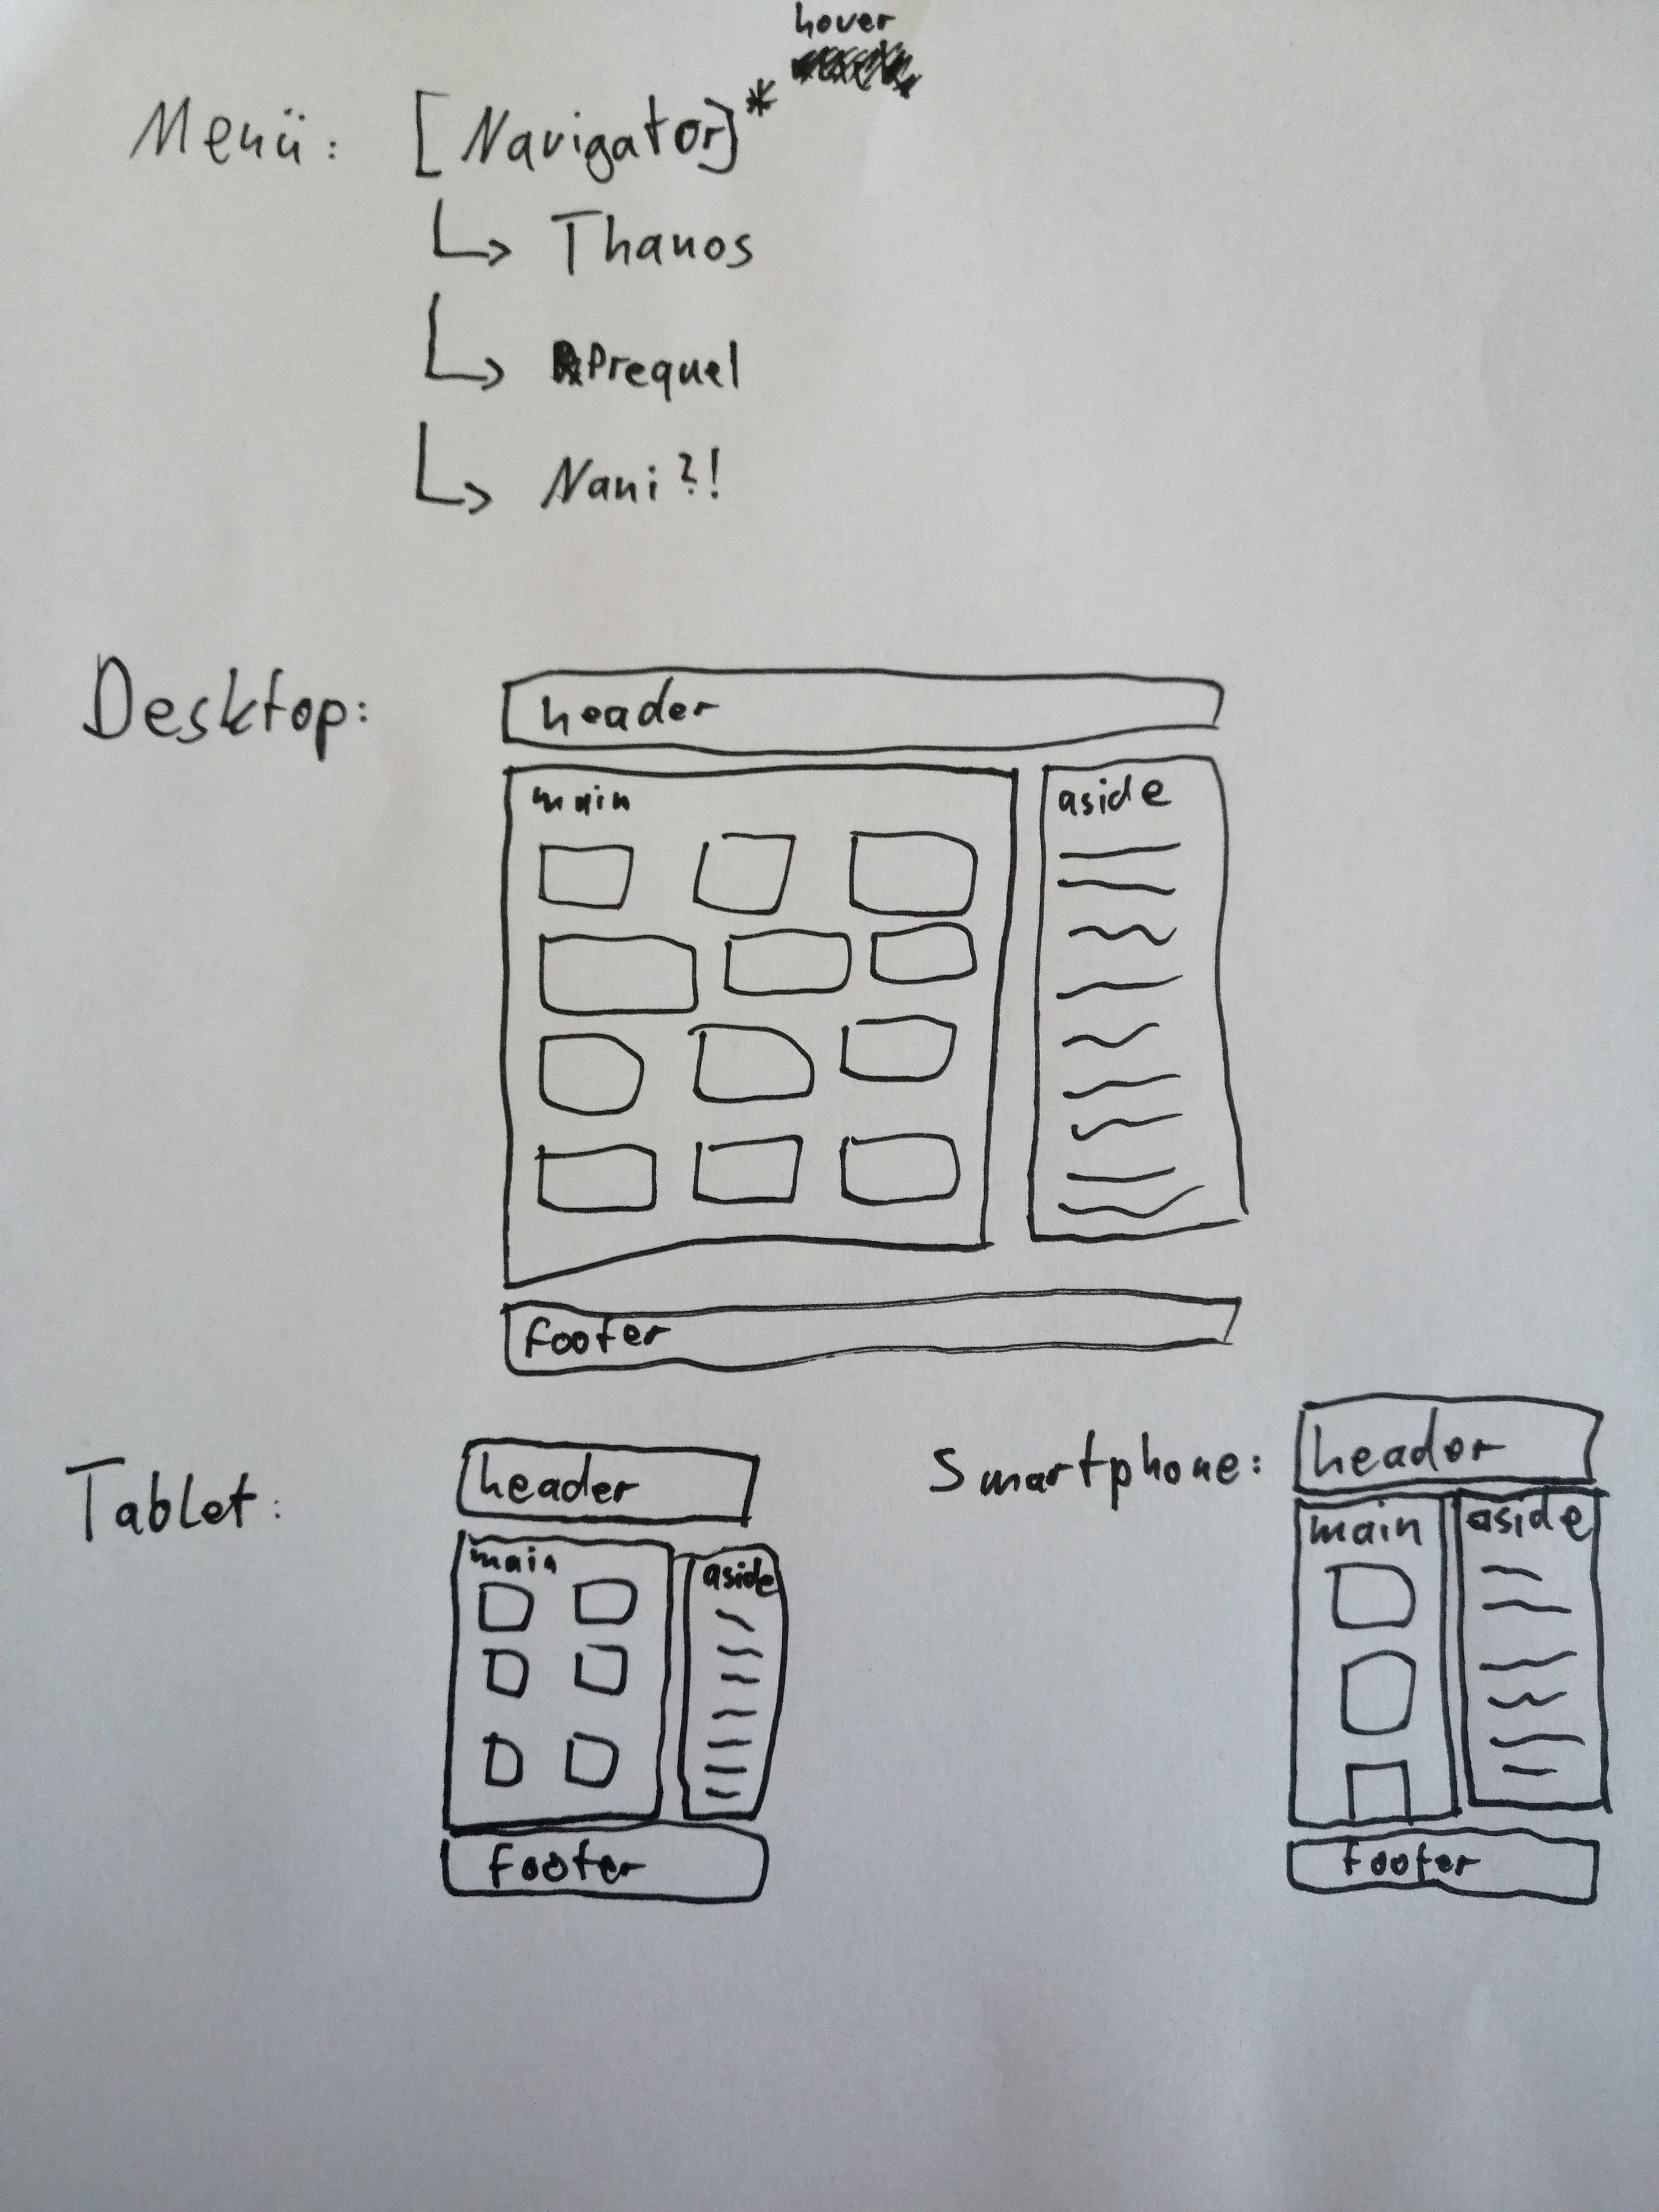 hover
Menü: [Navigator]*
Thanos
Prequel
Nani?!
Desktop:
header
main
aside
footer
Tablet:
header
main
aside
footer
Smartphone:
header
main
aside
footer